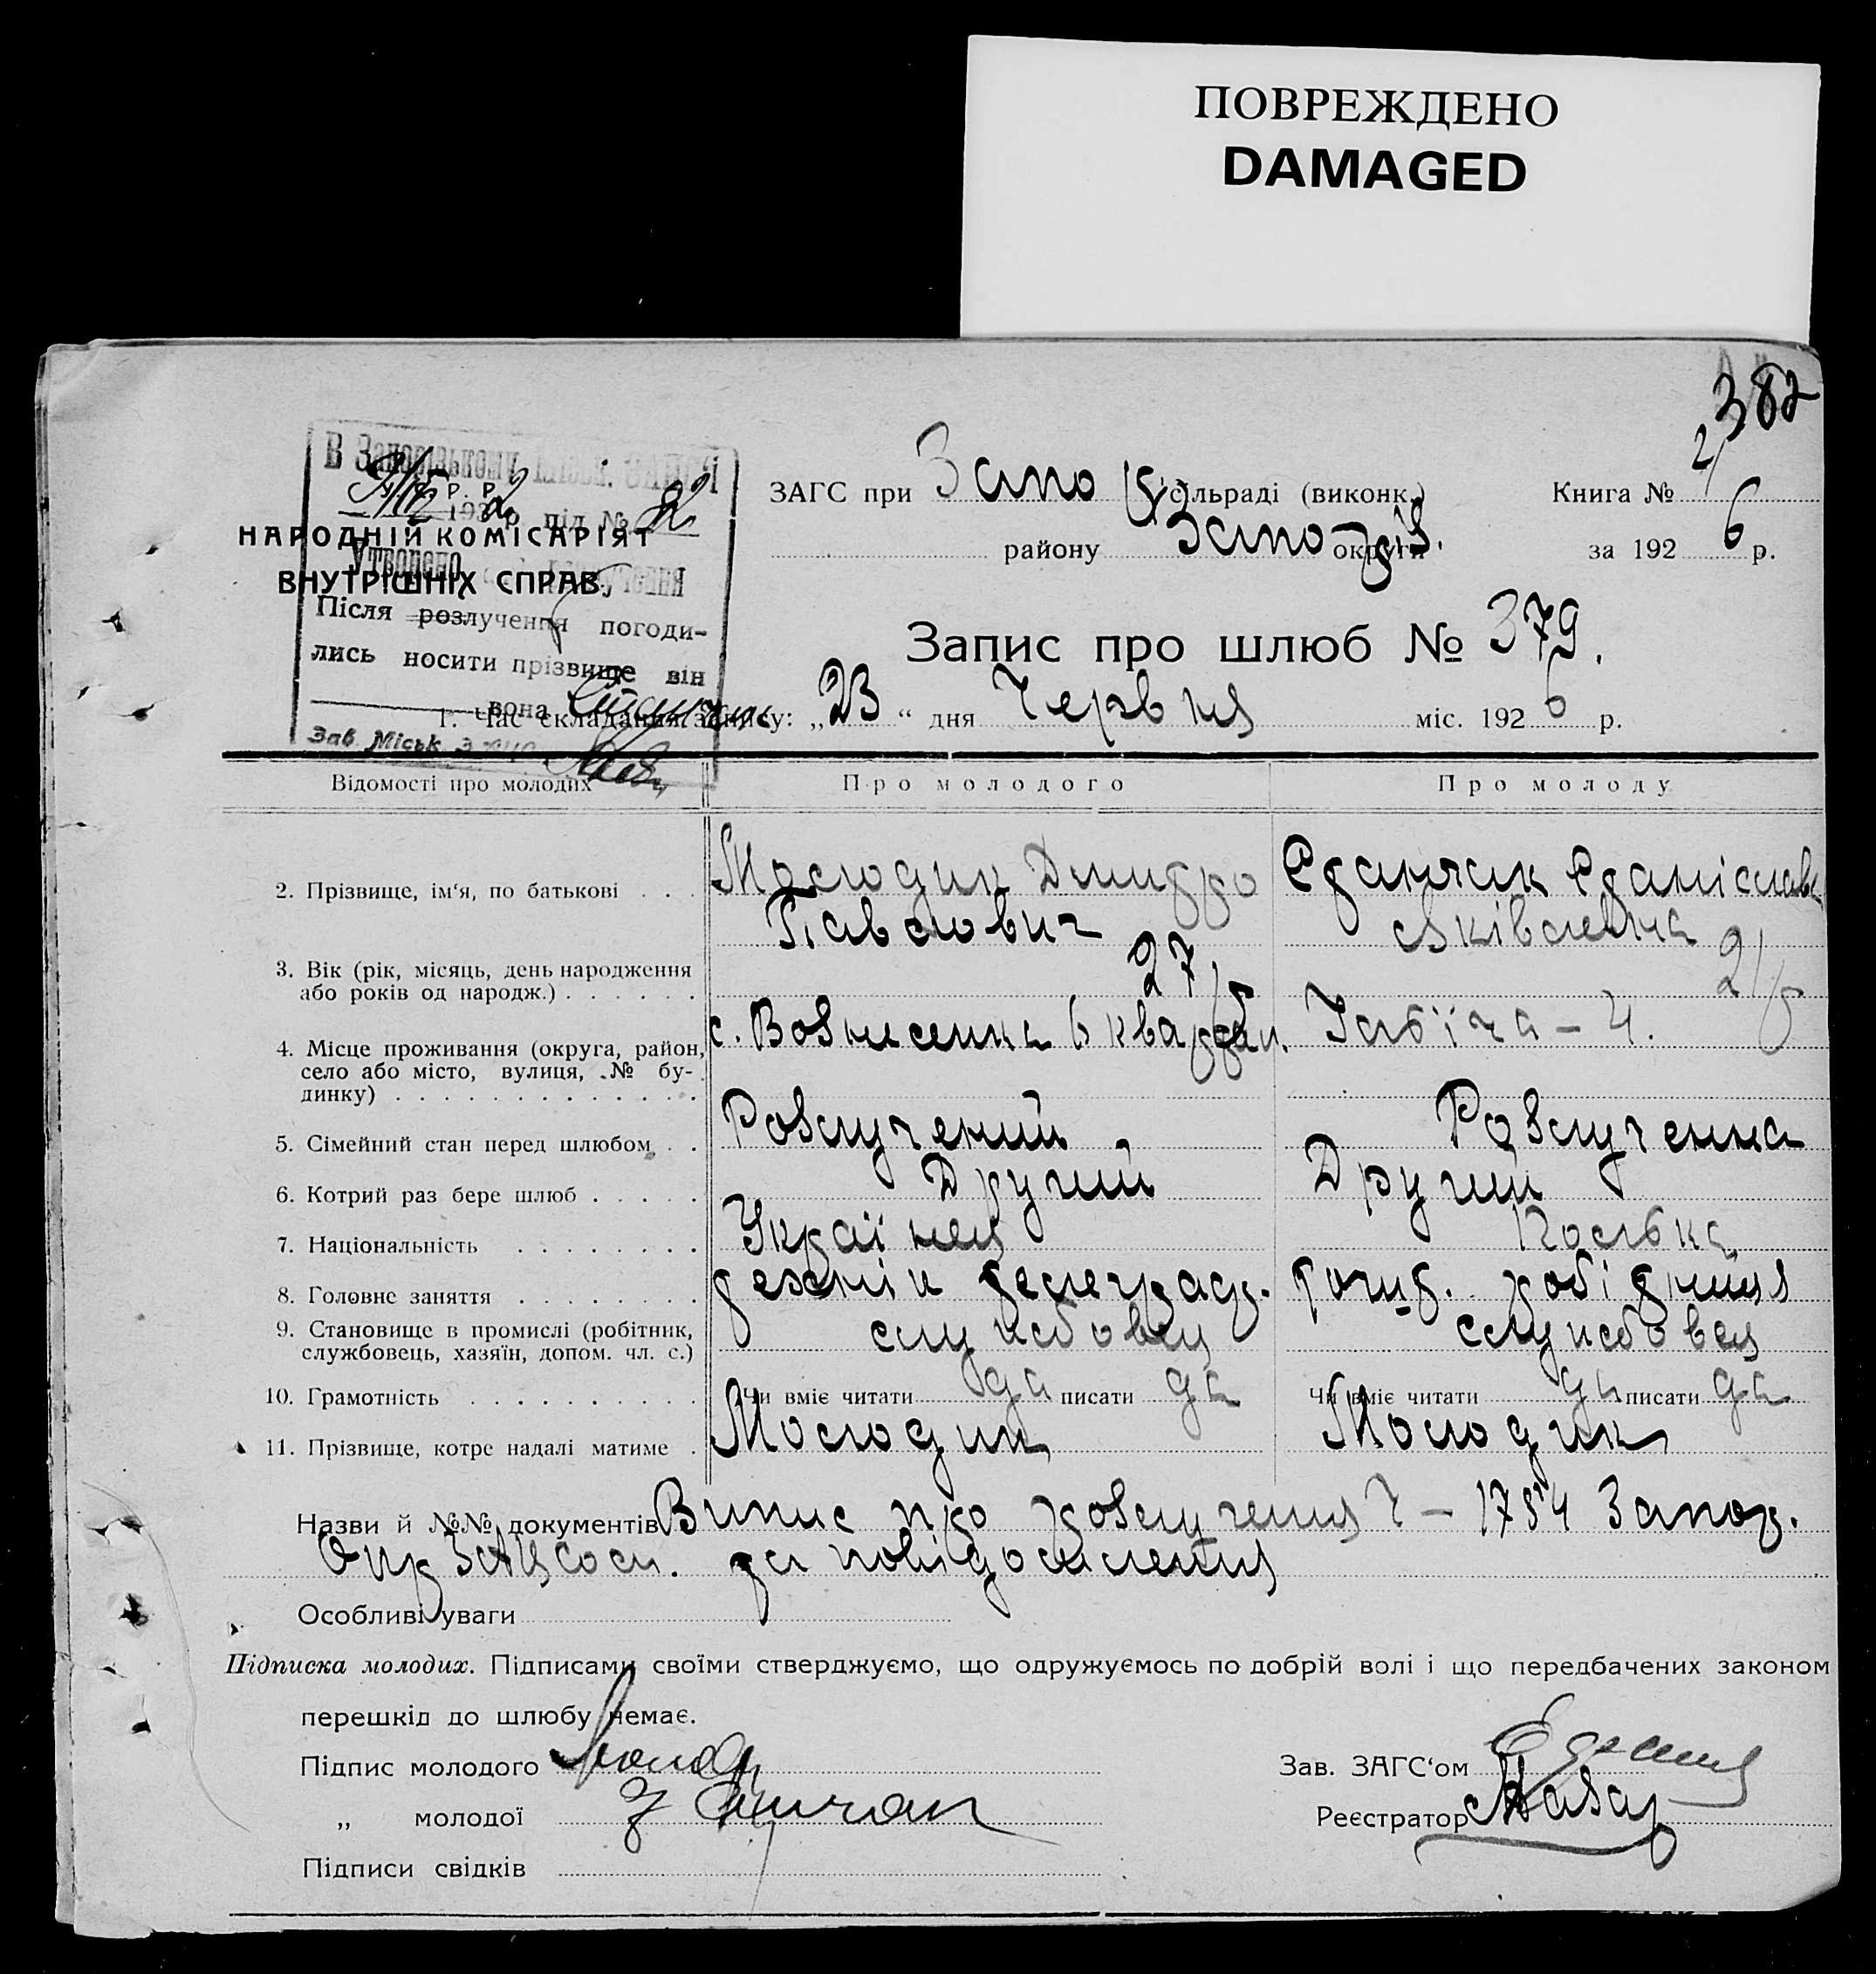 ПОВРЕЖДЕНО
DAMAGED
382
В Запорізькому
У. С. Р. Р.
193 2 р. під № 82
НАРОДНІЙ КОМІСАРІЯТ
ВНУТРІШНІХ СПРАВ.
Утворено розлучення
Після розлучення погоди-
лись носити прізвище він
вона Станчик
Зав. Міськ. ЗАГС
ЗАГС при Запо сільраді (виконк.) Книга № 2
району Запоріз. округи за 1926 р.
Запис про шлюб № 379.
1. Час складання запису: „23“ дня Червня міс. 1926 р.
Відомості про молодих Про молодого Про молоду
2. Прізвище, ім‘я, по батькові . . . Молодик Дмитро Станчик Станіслава
Павлович Яківлевна
3. Вік (рік, місяць, день народження
або років од народж.) . . . . . . 27 21
4. Місце проживання (округа, район, с. Вознесенка 6 кварт. 4.
село або місто, вулиця, № бу-
динку) . . . . . . . . . . . . .
5. Сімейний стан перед шлюбом . . Розлучений Розлученна
6. Котрий раз бере шлюб . . . . . Другий Другий
7. Національність . . . . . . . . Українец Полька
8. Головне заняття . . . . . . . . технік телеграф. робітниця
9. Становище в промислі (робітник, службовец службовец
службовець, хазяїн, допом. чл. с.)
10. Грамотність . . . . . . . . . . Чи вміє читати да писати да Чи вміє читати да писати да
11. Прізвище, котре надалі матиме . Молодик Молодик
Назви й №№ документів Випис про розлучення Ч – 1754 Запор.
Окр ЗАЦСом. та повідомлення
Особливі уваги
Підписка молодих. Підписами своїми стверджуємо, що одружуємось по добрій волі і що передбачених законом
перешкід до шлюбу немає.
Підпис молодого Зав. ЗАГС‘ом
„ молодої Реєстратор
Підписи свідків